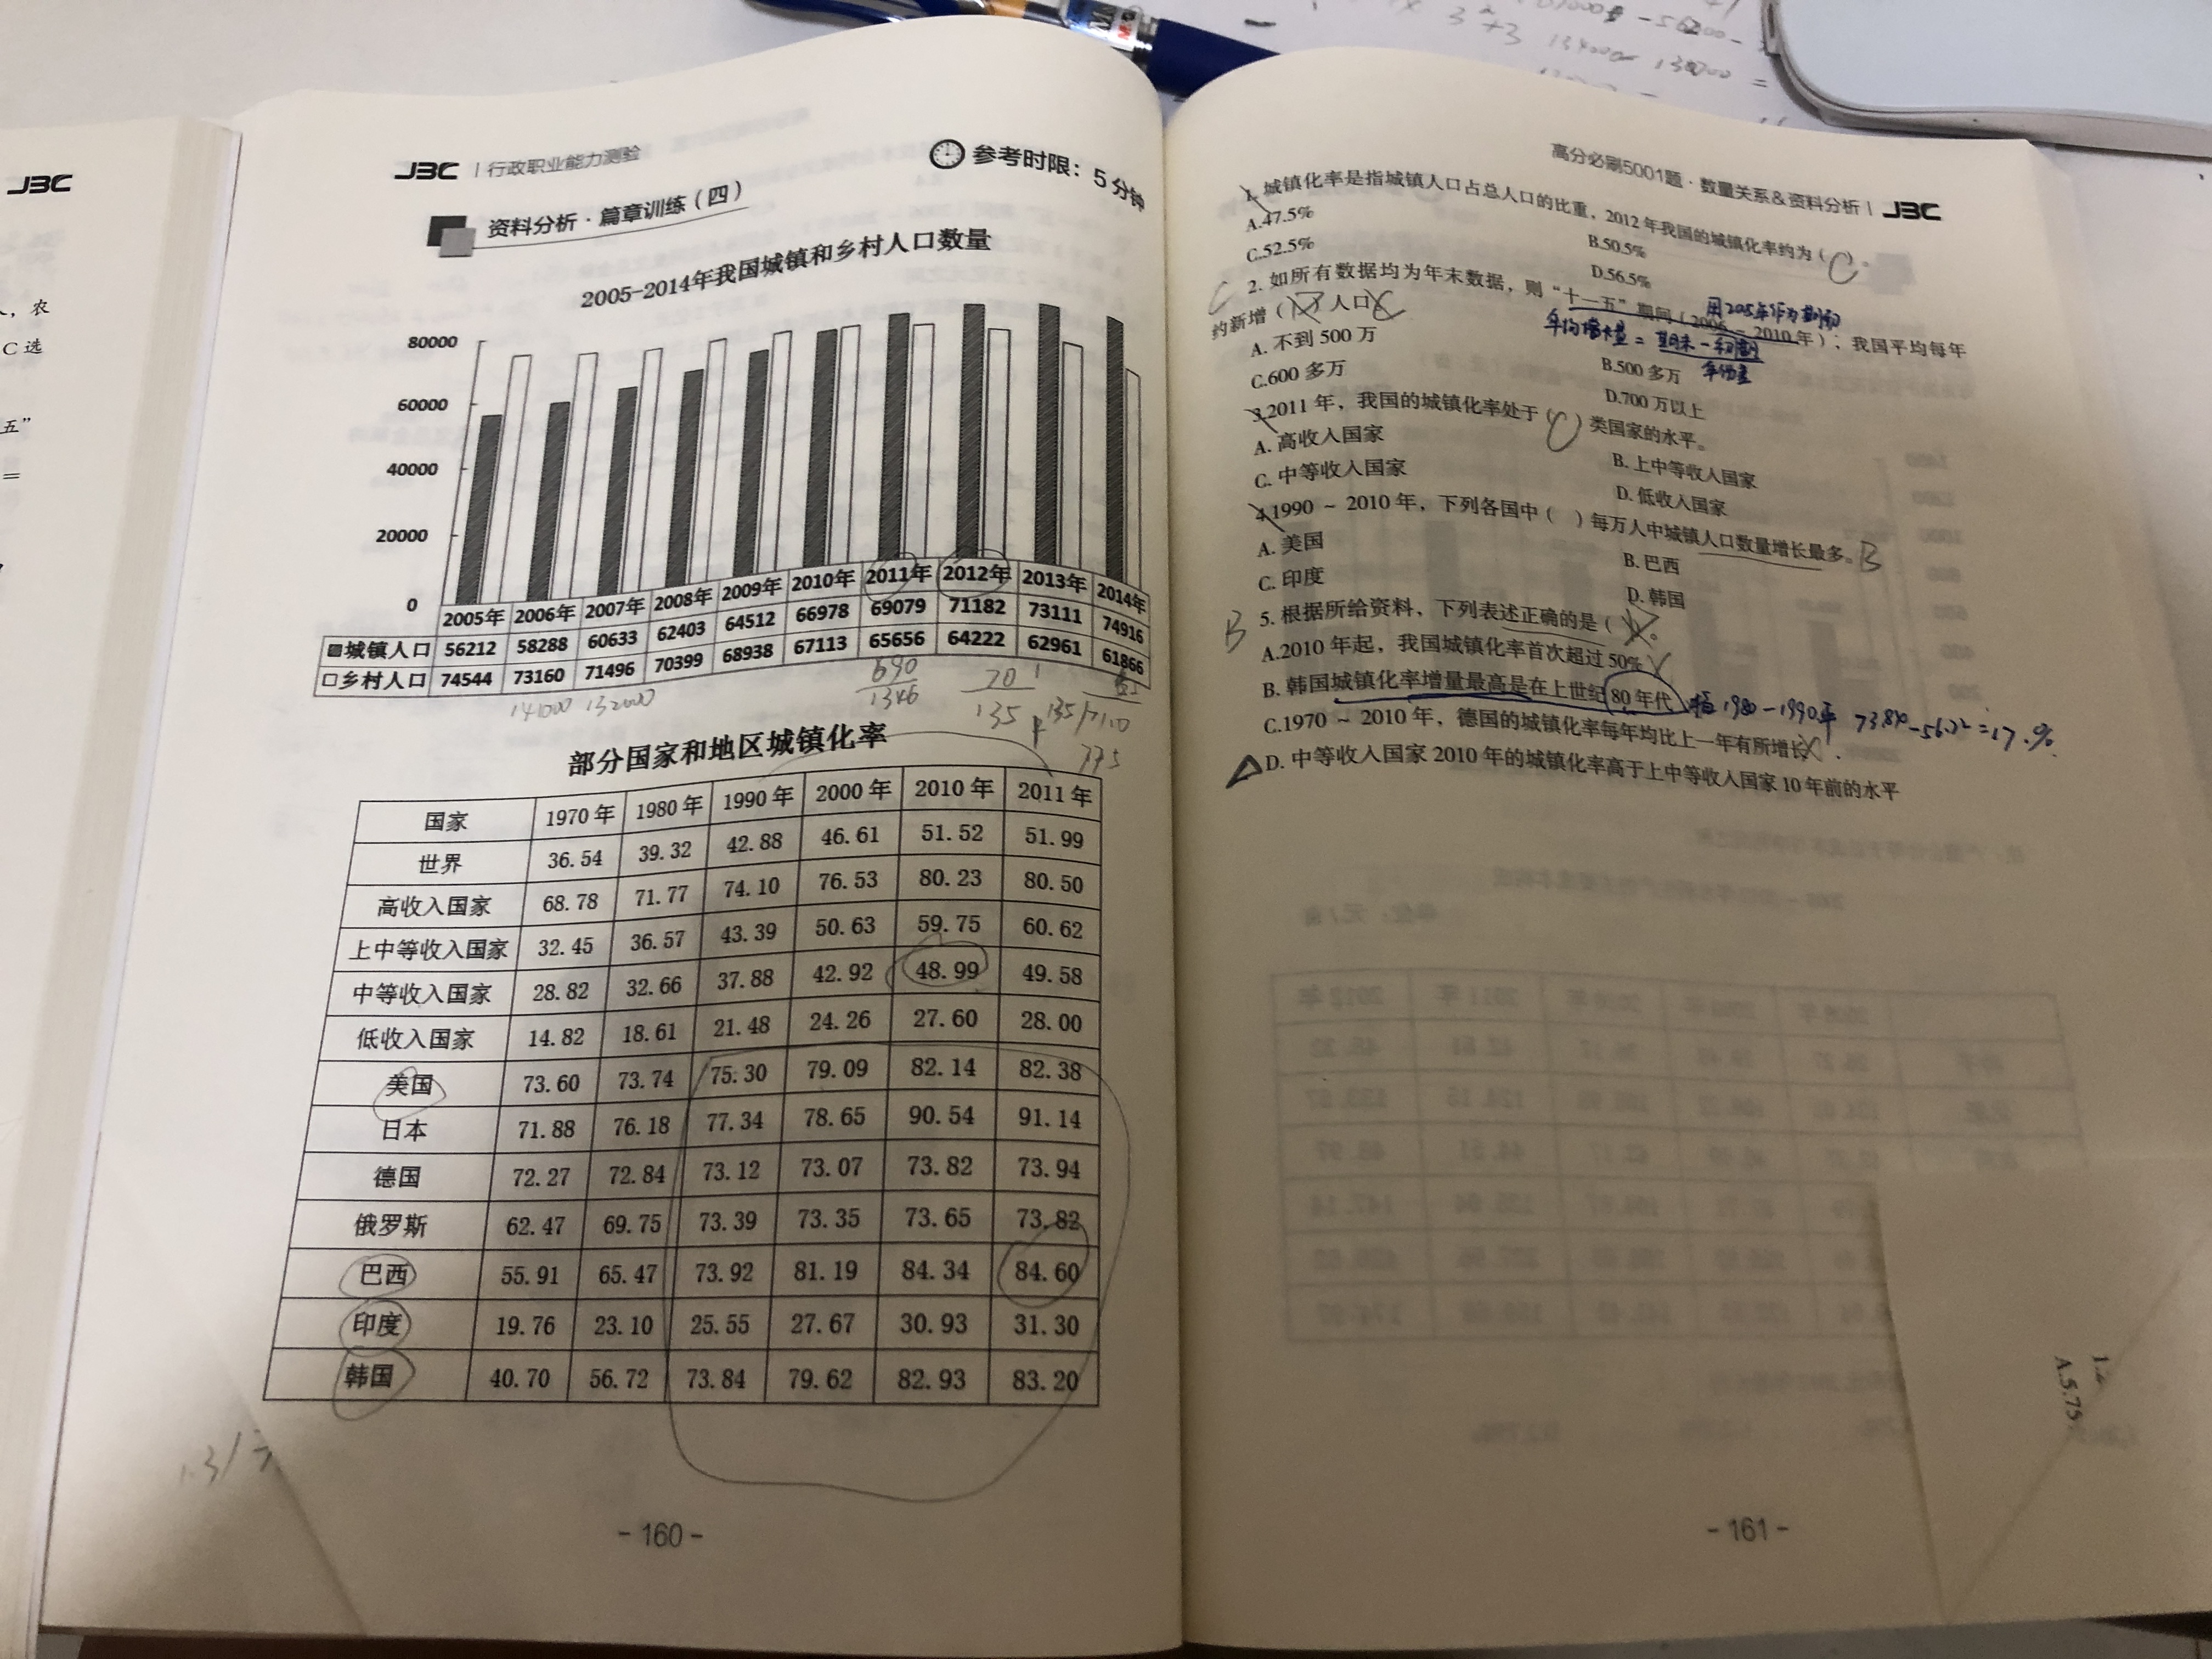 JBC
人，农
C选
五”
=
JBC | 行政职业能力测验
参考时限：5分钟
资料分析·篇章训练（四）
2005-2014年我国城镇和乡村人口数量
80000
60000
40000
20000
0
2005年 2006年 2007年 2008年 2009年 2010年 2011年 2012年 2013年 2014年
城镇人口 56212 58288 60633 62403 64512 66978 69079 71182 73111 74916
乡村人口 74544 73160 71496 70399 68938 67113 65656 64222 62961 61866
141000 132000
690
1346
70
135
部分国家和地区城镇化率
国家 1970年 1980年 1990年 2000年 2010年 2011年
世界 36.54 39.32 42.88 46.61 51.52 51.99
高收入国家 68.78 71.77 74.10 76.53 80.23 80.50
上中等收入国家 32.45 36.57 43.39 50.63 59.75 60.62
中等收入国家 28.82 32.66 37.88 42.92 48.99 49.58
低收入国家 14.82 18.61 21.48 24.26 27.60 28.00
美国 73.60 73.74 75.30 79.09 82.14 82.38
日本 71.88 76.18 77.34 78.65 90.54 91.14
德国 72.27 72.84 73.12 73.07 73.82 73.94
俄罗斯 62.47 69.75 73.39 73.35 73.65 73.82
巴西 55.91 65.47 73.92 81.19 84.34 84.60
印度 19.76 23.10 25.55 27.67 30.93 31.30
韩国 40.70 56.72 73.84 79.62 82.93 83.20
- 160 -
高分必刷5001题·数量关系&资料分析 | JBC
1. 城镇化率是指城镇人口占总人口的比重，2012年我国的城镇化率约为（C）。
A.47.5%
B.50.5%
C.52.5%
D.56.5%
C
2. 如所有数据均为年末数据，则“十一五”期间（2006~2010年），我国平均每年
约新增（ ）人口 C
用2005年作为基期
年均增长量=期末-初期
年份差
A. 不到500万
B.500多万
C.600多万
D.700万以上
3.2011年，我国的城镇化率处于（C）类国家的水平。
A. 高收入国家
B. 上中等收入国家
C. 中等收入国家
D. 低收入国家
4.1990~2010年，下列各国中（ ）每万人中城镇人口数量增长最多。B
A. 美国
B. 巴西
C. 印度
D. 韩国
B
5. 根据所给资料，下列表述正确的是（ ）。
A.2010年起，我国城镇化率首次超过50%
B. 韩国城镇化率增量最高是在上世纪80年代 指1980-1990年
C.1970~2010年，德国的城镇化率每年均比上一年有所增长
D. 中等收入国家2010年的城镇化率高于上中等收入国家10年前的水平
A.5.75
- 161 -